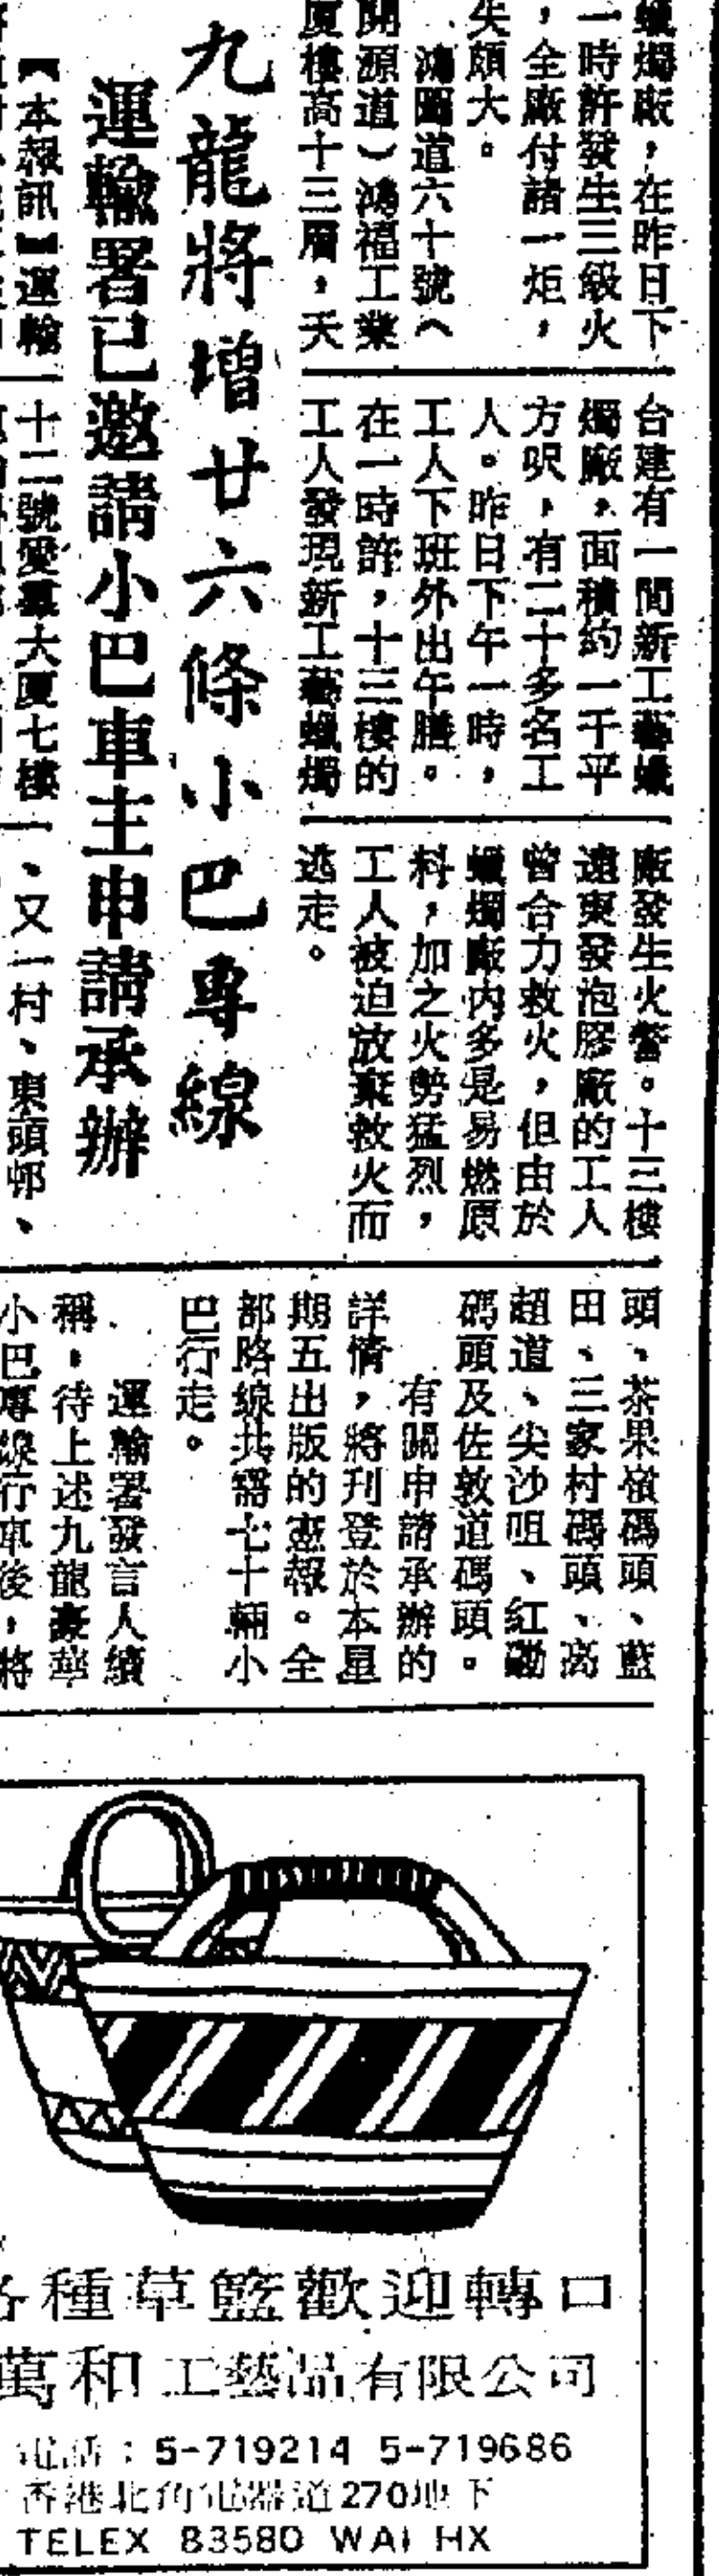 蠟燭廠，在昨日下
一時許發生三級火
，全廠付諸一炬，
失頗大。
鴻圖道六十號（
開源道）鴻福工業
廈樓高十三層，天
台建有一間新工藝蠟
燭廠，面積約一千平
方呎，有二十多名工
人。昨日下午一時，
工人下班外出午膳。
在一時許，十三樓的
工人發現新工藝蠟燭
廠發生火警。十三樓
遠東發泡膠廠的工人
曾合力救火，但由於
蠟燭廠內多是易燃原
料，加之火勢猛烈，
工人被迫放棄救火而
逃走。
九龍將增廿六條小巴專線
運輸署已邀請小巴車主申請承辦
【本報訊】運輸
十二號愛羣大廈七樓
一、又一村、東頭邨、
頭、茶果嶺碼頭、藍
田、三家村碼頭、高
超道、尖沙咀、紅磡
碼頭及佐敦道碼頭。
有關申請承辦的
詳情，將刊登於本星
期五出版的憲報。全
部路線共需七十輛小
巴行走。
運輸署發言人續
稱，待上述九龍豪華
小巴專線行車後，將
各種草籃歡迎轉口
萬和工藝品有限公司
電話：5-719214 5-719686
香港北角電器道270地下
TELEX 83580 WAI HX